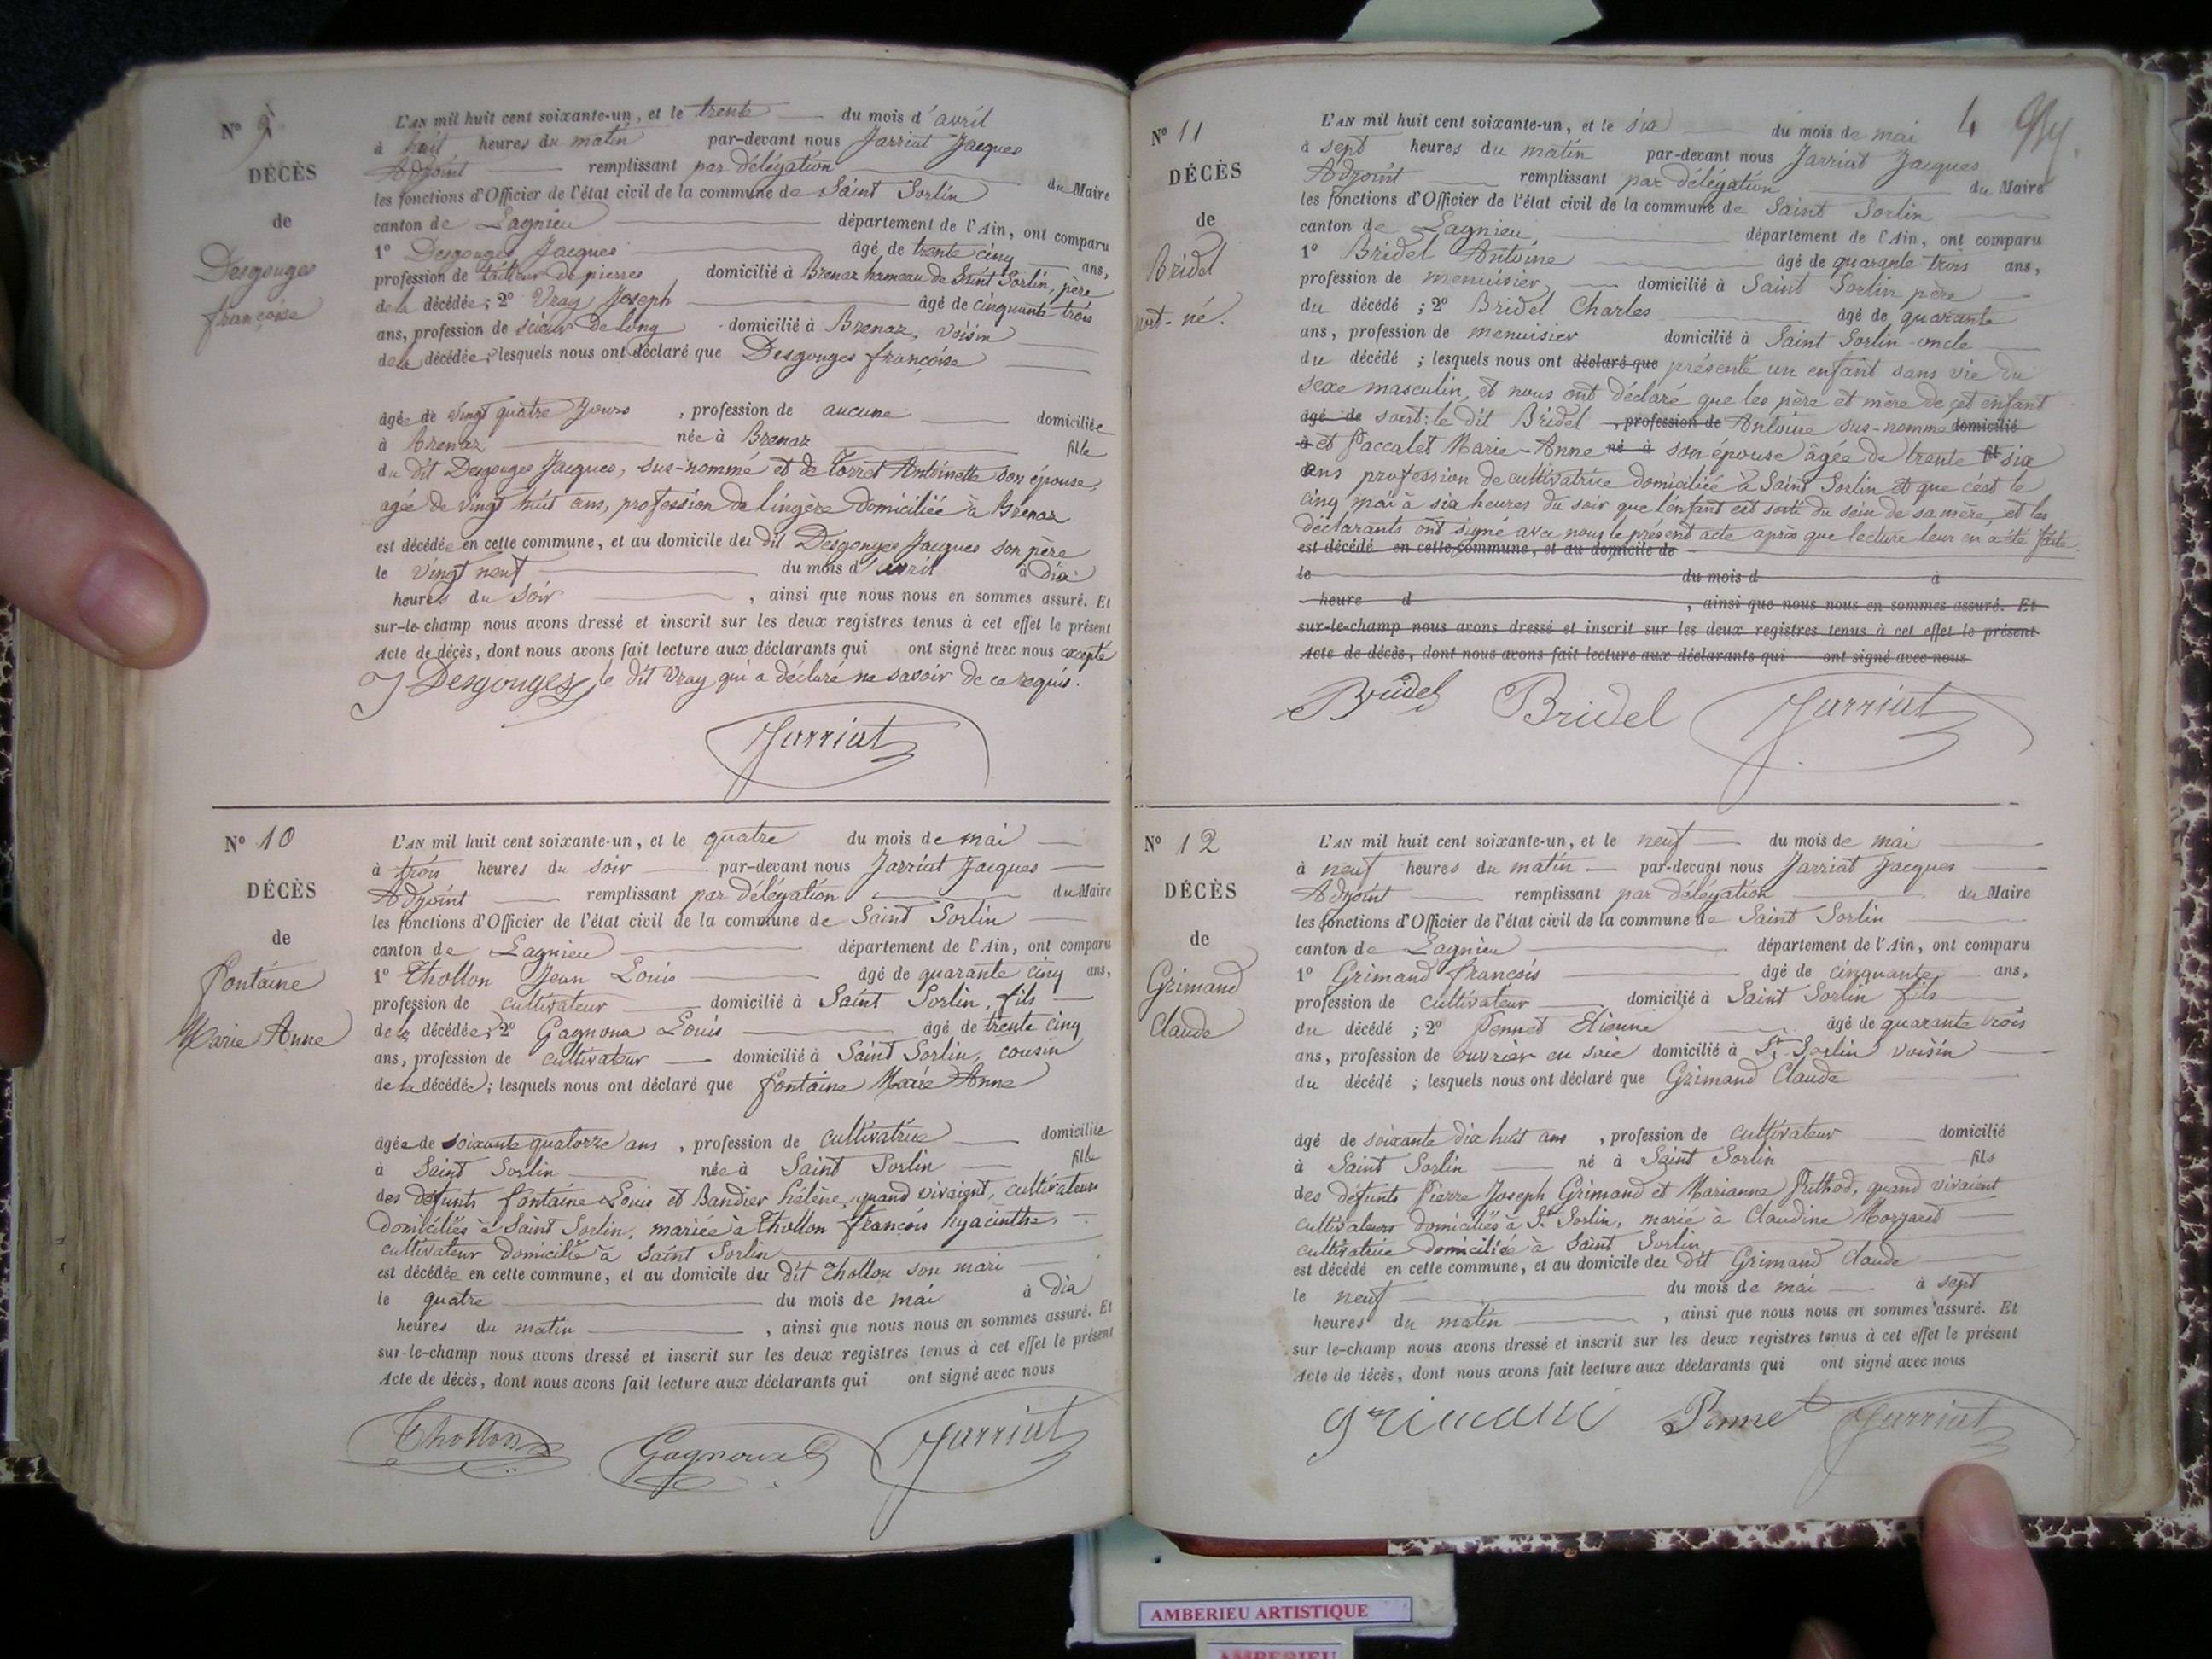 Nº 9
DÉCÈS
de
Desgouges
françoise
L'AN mil huit cent soixante-un, et le trente du mois d'avril
à huit heures du matin par-devant nous Jarriat Jacques
Adjoint remplissant par délégation du Maire
les fonctions d'Officier de l'état civil de la commune de Saint Sorlin
canton de Lagnieu département de l'Ain, ont comparu
1º Desgouges Jacques âgé de trente cinq ans,
profession de tailleur de pierres domicilié à Brenaz hameau de Saint Sorlin, père
de la décédée; 2º Vray Joseph âgé de cinquante trois
ans, profession de scieur de long domicilié à Brenaz, voisin
de la décédée; lesquels nous ont déclaré que Desgouges françoise
âgée de vingt quatre jours, profession de aucune domiciliée
à Brenaz née à Brenaz fille
du dit Desgouges Jacques, sus-nommé et de Torret Antoinette son épouse,
agée de vingt huit ans, profession de lingère domiciliée à Brenaz
est décédée en cette commune, et au domicile du dit Desgouges Jacques son père
le vingt neuf du mois d'avril à dix
heures du soir, ainsi que nous nous en sommes assuré. Et
sur-le-champ nous avons dressé et inscrit sur les deux registres tenus à cet effet le présent
Acte de décès, dont nous avons fait lecture aux déclarants qui ont signé avec nous excepté
le dit Vray qui a déclaré ne savoir de ce requis.
J Desgouges
Jarriat
Nº 10
DÉCÈS
de
fontaine
Marie Anne
L'AN mil huit cent soixante-un, et le quatre du mois de mai
à trois heures du soir par-devant nous Jarriat Jacques
Adjoint remplissant par délégation du Maire
les fonctions d'Officier de l'état civil de la commune de Saint Sorlin
canton de Lagnieu département de l'Ain, ont comparu
1º Thollon Jean Louis âgé de quarante cinq ans,
profession de cultivateur domicilié à Saint Sorlin, fils
de la décédée; 2º Gagnoux Louis âgé de trente cinq
ans, profession de cultivateur domicilié à Saint Sorlin, cousin
de la décédée; lesquels nous ont déclaré que fontaine Marie Anne
âgée de soixante quatorze ans, profession de cultivatrice domiciliée
à Saint Sorlin née à Saint Sorlin fille
des défunts fontaine Louis et Bandier hélène, quand vivaient, cultivateurs
domiciliés à Saint Sorlin, mariée à Thollon françois hyacinthe,
cultivateur domicilié à Saint Sorlin
est décédée en cette commune, et au domicile du dit Thollon son mari
le quatre du mois de mai à dix
heures du matin, ainsi que nous nous en sommes assuré. Et
sur-le-champ nous avons dressé et inscrit sur les deux registres tenus à cet effet le présent
Acte de décès, dont nous avons fait lecture aux déclarants qui ont signé avec nous
Thollon Gagnoux Jarriat
4
Nº 11
DÉCÈS
de
Bridel
mort-né.
L'AN mil huit cent soixante-un, et le six du mois de mai
à sept heures du matin par-devant nous Jarriat Jacques
Adjoint remplissant par délégation du Maire
les fonctions d'Officier de l'état civil de la commune de Saint Sorlin
canton de Lagnieu département de l'Ain, ont comparu
1º Bridel Antoine âgé de quarante trois ans,
profession de menuisier domicilié à Saint Sorlin père
du décédé; 2º Bridel Charles âgé de quarante
ans, profession de menuisier domicilié à Saint Sorlin oncle
du décédé; lesquels nous ont déclaré que présenté un enfant sans vie du
sexe masculin, et nous ont déclaré que les père et mère de cet enfant
âgé de sont: le dit Bridel, profession de Antoine sus-nommé domicilié
à et Paccalet Marie-Anne né à son épouse âgée de trente six
ans profession de cultivatrice domiciliée à Saint Sorlin et que c'est le
cinq mai à six heures du soir que l'enfant est sorti du sein de sa mère, et les
déclarants ont signé avec nous le présent acte après que lecture leur en a été faite.
est décédé en cette commune, et au domicile de
le du mois d à
heure d, ainsi que nous nous en sommes assuré. Et
sur-le-champ nous avons dressé et inscrit sur les deux registres tenus à cet effet le présent
Acte de décès, dont nous avons fait lecture aux déclarants qui ont signé avec nous
Bridel Bridel Jarriat
Nº 12
DÉCÈS
de
Grimand
Claude
L'AN mil huit cent soixante-un, et le neuf du mois de mai
à neuf heures du matin par-devant nous Jarriat Jacques
Adjoint remplissant par délégation du Maire
les fonctions d'Officier de l'état civil de la commune de Saint Sorlin
canton de Lagnieu département de l'Ain, ont comparu
1º Grimand françois âgé de cinquante ans,
profession de cultivateur domicilié à Saint Sorlin fils
du décédé; 2º Pennet Etienne âgé de quarante trois
ans, profession de ouvrier en soie domicilié à St Sorlin voisin
du décédé; lesquels nous ont déclaré que Grimand Claude
âgé de soixante dix huit ans, profession de cultivateur domicilié
à Saint Sorlin né à Saint Sorlin fils
des défunts Pierre Joseph Grimand et Marianne Frithod, quand vivaient
cultivateurs domiciliés à St Sorlin, marié à Claudine Morgaret
cultivatrice domiciliée à Saint Sorlin
est décédé en cette commune, et au domicile du dit Grimand Claude
le neuf du mois de mai à sept
heures du matin, ainsi que nous nous en sommes assuré. Et
sur le-champ nous avons dressé et inscrit sur les deux registres tenus à cet effet le présent
Acte de décès, dont nous avons fait lecture aux déclarants qui ont signé avec nous
grimand Pennet Jarriat
AMBERIEU ARTISTIQUE
AMBERIEU